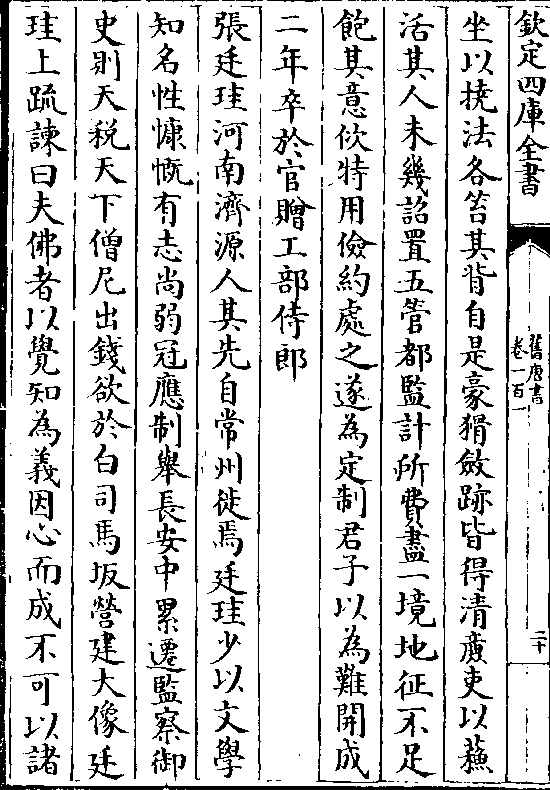 欽定四庫全書
舊唐書
卷一百一
二十
坐以撓法各笞其背自是豪猾斂跡皆得清廉吏以蘇
活其人未幾詔置五管都監計所費盡一境地征不足
飽其意佽特用儉約處之遂為定制君子以為難開成
二年卒於官贈工部侍郎
張廷珪河南濟源人其先自常州徙焉廷珪少以文學
知名性慷慨有志尚弱冠應制舉長安中累遷監察御
史則天税天下僧尼出錢欲於白司馬坂營建大像廷
珪上疏諫曰夫佛者以覺知為義因心而成不可以諸